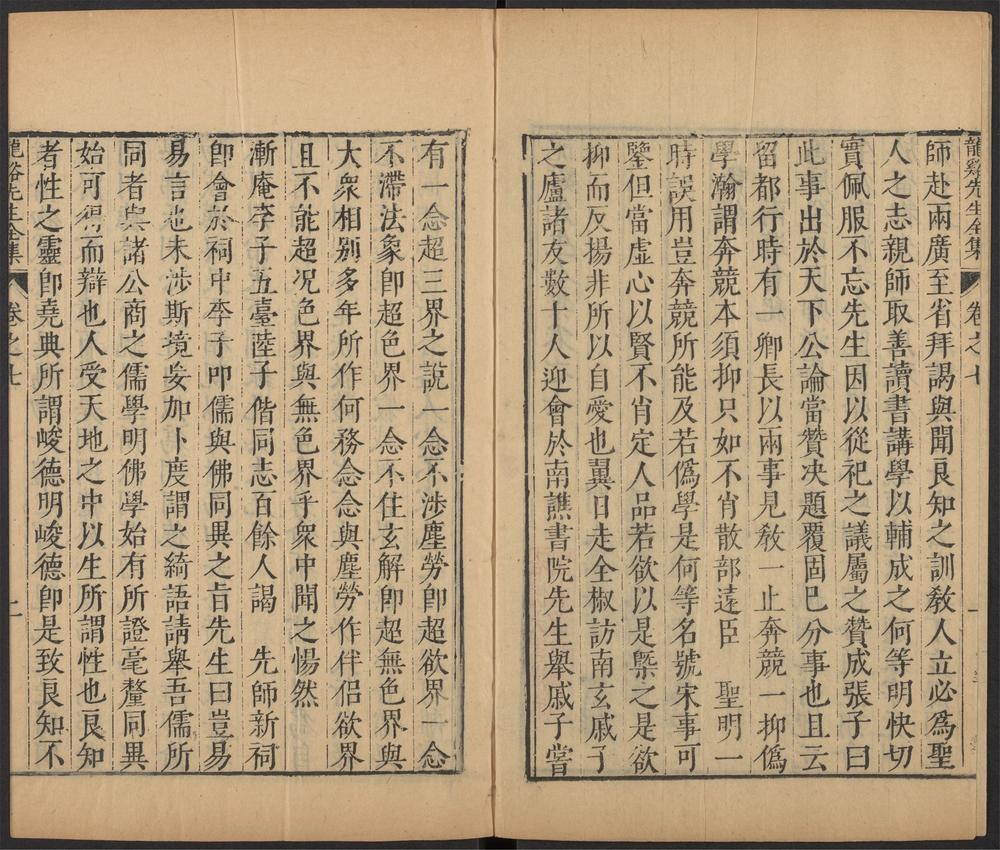 龍谿先生全集 卷之七 一
師赴兩廣至省拜謁與聞良知之訓教人立必爲聖
人之志親師取善讀書講學以輔成之何等明快切
實佩服不忘先生因以從祀之議屬之贊成張子曰
此事出於天下公論當贊决題覆固已分事也且云
留都行時有一卿長以兩事見教一止奔競一抑僞
學瀚謂奔競本須抑只如不肖散部遠臣 聖明一
時誤用豈奔競所能及若僞學是何等名號宋事可
鑒但當虛心以賢不肖定人品若欲以是槩之是欲
抑而反揚非所以自愛也翼日走全椒訪南玄戚子
之廬諸友數十人迎會於南譙書院先生舉戚子嘗
有一念超三界之說一念不涉塵勞卽超欲界一念
不滯法象卽超色界一念不住玄解卽超無色界與
大衆相别多年所作何務念念與塵勞作伴侶欲界
且不能超况色界與無色界乎衆中聞之惕然
漸庵李子五臺陸子偕同志百餘人謁 先師新祠
卽會於祠中李子叩儒與佛同異之旨先生曰豈易
易言也未涉斯境妄加卜度謂之綺語請舉吾儒所
同者與諸公商之儒學明佛學始有所證毫釐同異
始可得而辯也人受天地之中以生所謂性也良知
者性之靈卽堯典所謂峻德明峻德卽是致良知不
龍谿先生全集 卷之七 二